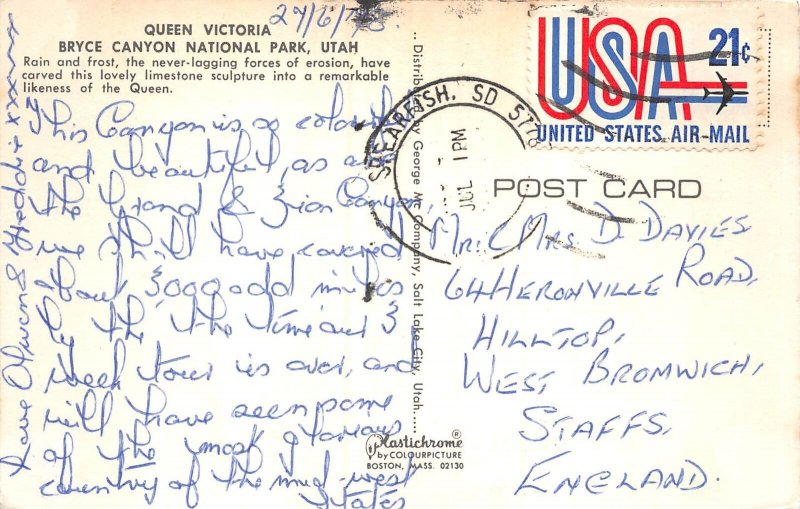 27/6/73
QUEEN VICTORIA
BRYCE CANYON NATIONAL PARK, UTAH
Rain and frost, the never-lagging forces of erosion, have
carved this lovely limestone sculpture into a remarkable
likeness of the Queen.
This Canyon is so colorful
and beautiful, as are
the Grand & Zion Canyon,
we shall have covered
about 3,000 odd miles
by the the time our 3
week tour is over, and
will have seen some
of the most glorious
country of the mid-west
States
Love Olwen & Freddie xxxxxx
Distributed by George Mc Company, Salt Lake City, Utah
Plastichrome®
by COLOURPICTURE
BOSTON, MASS. 02130
SPEARFISH, SD 577
1 PM
JUL
USA
21¢
UNITED STATES AIR-MAIL
POST CARD
Mr. & Mrs D. DAVIES
64 HERONVILLE ROAD,
HILLTOP,
WEST BROMWICH,
STAFFS,
ENGLAND.